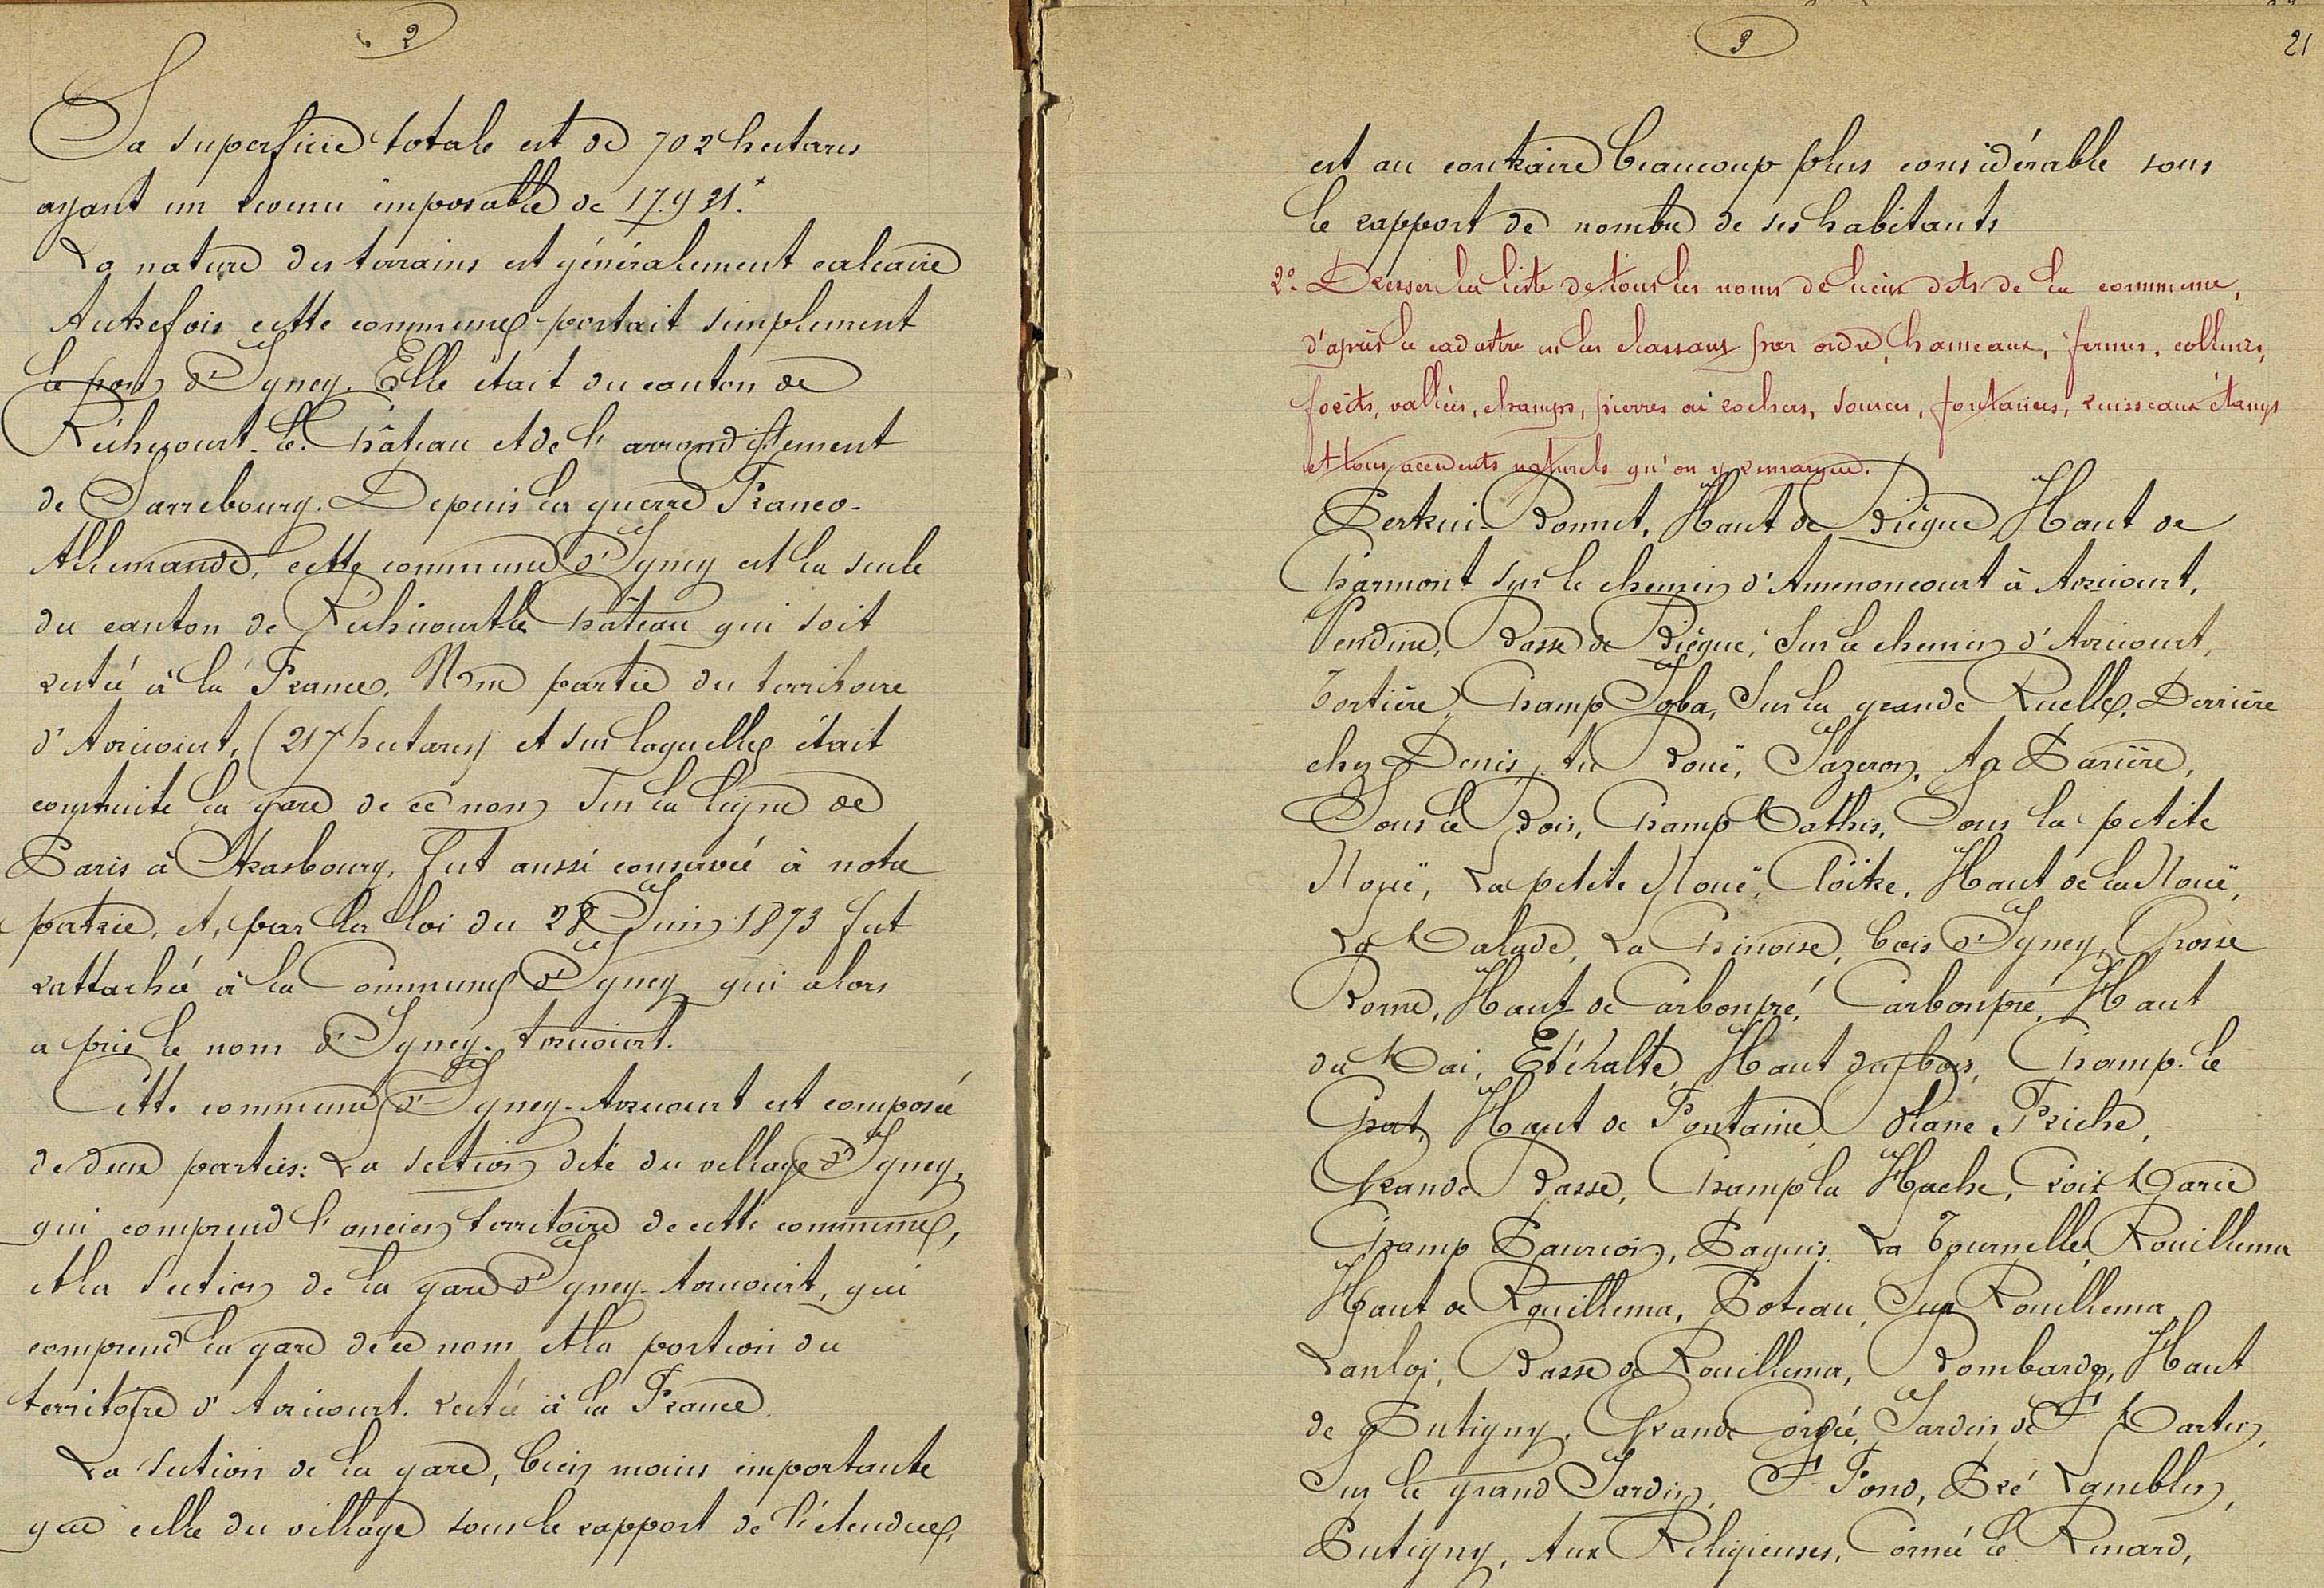 2
Sa superficie totale est de 702 hectares
ayant un revenu imposable de 17.921.
La nature des terrains est généralement calcaire
Autrefois cette commune portait simplement
le nom d'Igney. Elle était du canton de
Réchicourt-le-Château et de l'arrondissement
de Sarrebourg. Depuis la guerre Franco-
Allemande, cette commune d'Igney est la seule
du canton de Réchicourt-le-Château qui soit
restée à la France. Une partie du territoire
d'Avricourt, (217 hectares) et sur laquelle était
construite la gare de ce nom sur la ligne de
Paris à Strasbourg, fut aussi conservée à notre
patrie, et, par la loi du 28 Juin 1873 fut
rattachée à la Commune d'Igney qui alors
a pris le nom d'Igney-Avricourt.
Cette commune d'Igney-Avricourt est composée
de deux parties: La section dite du village d'Igney,
qui comprend l'ancien territoire de cette commune,
et la section de la gare d'Igney-Avricourt, qui
comprend la gare de ce nom et la portion du
territoire d'Avricourt. restée à la France.
La section de la gare, bien moins importante
que celle du village sous le rapport de l'étendue,
3
21
est au contraire beaucoup plus considérable sous
le rapport de nombre de ses habitants
2°. Dresser la liste de tous les noms de lieux dits de la commune,
d'après le cadastre en les classant par ordre, hameaux, fermes, collines,
forêts, vallées, champs, pierres ou rochers, sources, fontaines, ruisseaux étangs
et tous accidents naturels qu'on y remarque.
Pertui-Bonnet, Haut de Biégne, Haut de
Charmont sur le chemin d'Amenoncourt à Avricourt,
Vendine, Basse de Biégne, Sur le chemin d'Avricourt,
Tortière, Champ Igba, Sur la grande Ruelle, Derrière
chez Denis, Au Bouë, Jazeron, A la Barrière,
Sous le Bois, Champ Mathis, Sous la petite
Nouë, La petite Nouë, Cloître, Haut de la Nouë,
La Malade, La Chinoise, bois d'Igney, Grosse
Borne, Haut de Carbonpré, Carbonpré, Haut
du Mai, Etéhalte, Haut du bois, Champ-le
Chat, Haut de Fontaine Blanc Friche,
Grande Basse, Champ la Hache, Croix Marie
Champ Paurion, Paquis, La Tournelle, Rouillema
Haut de Rouillema, Poteau, Sur Rouillema
Lanloi, Basse de Rouillema, Bombarde, Haut
de Putigny, Grande Corvée, Jardin de St Martin,
Sur le grand Jardin, St Fond, Pré Lamblin,
Putigny, Aux Religieuses, Cornée le Renard,